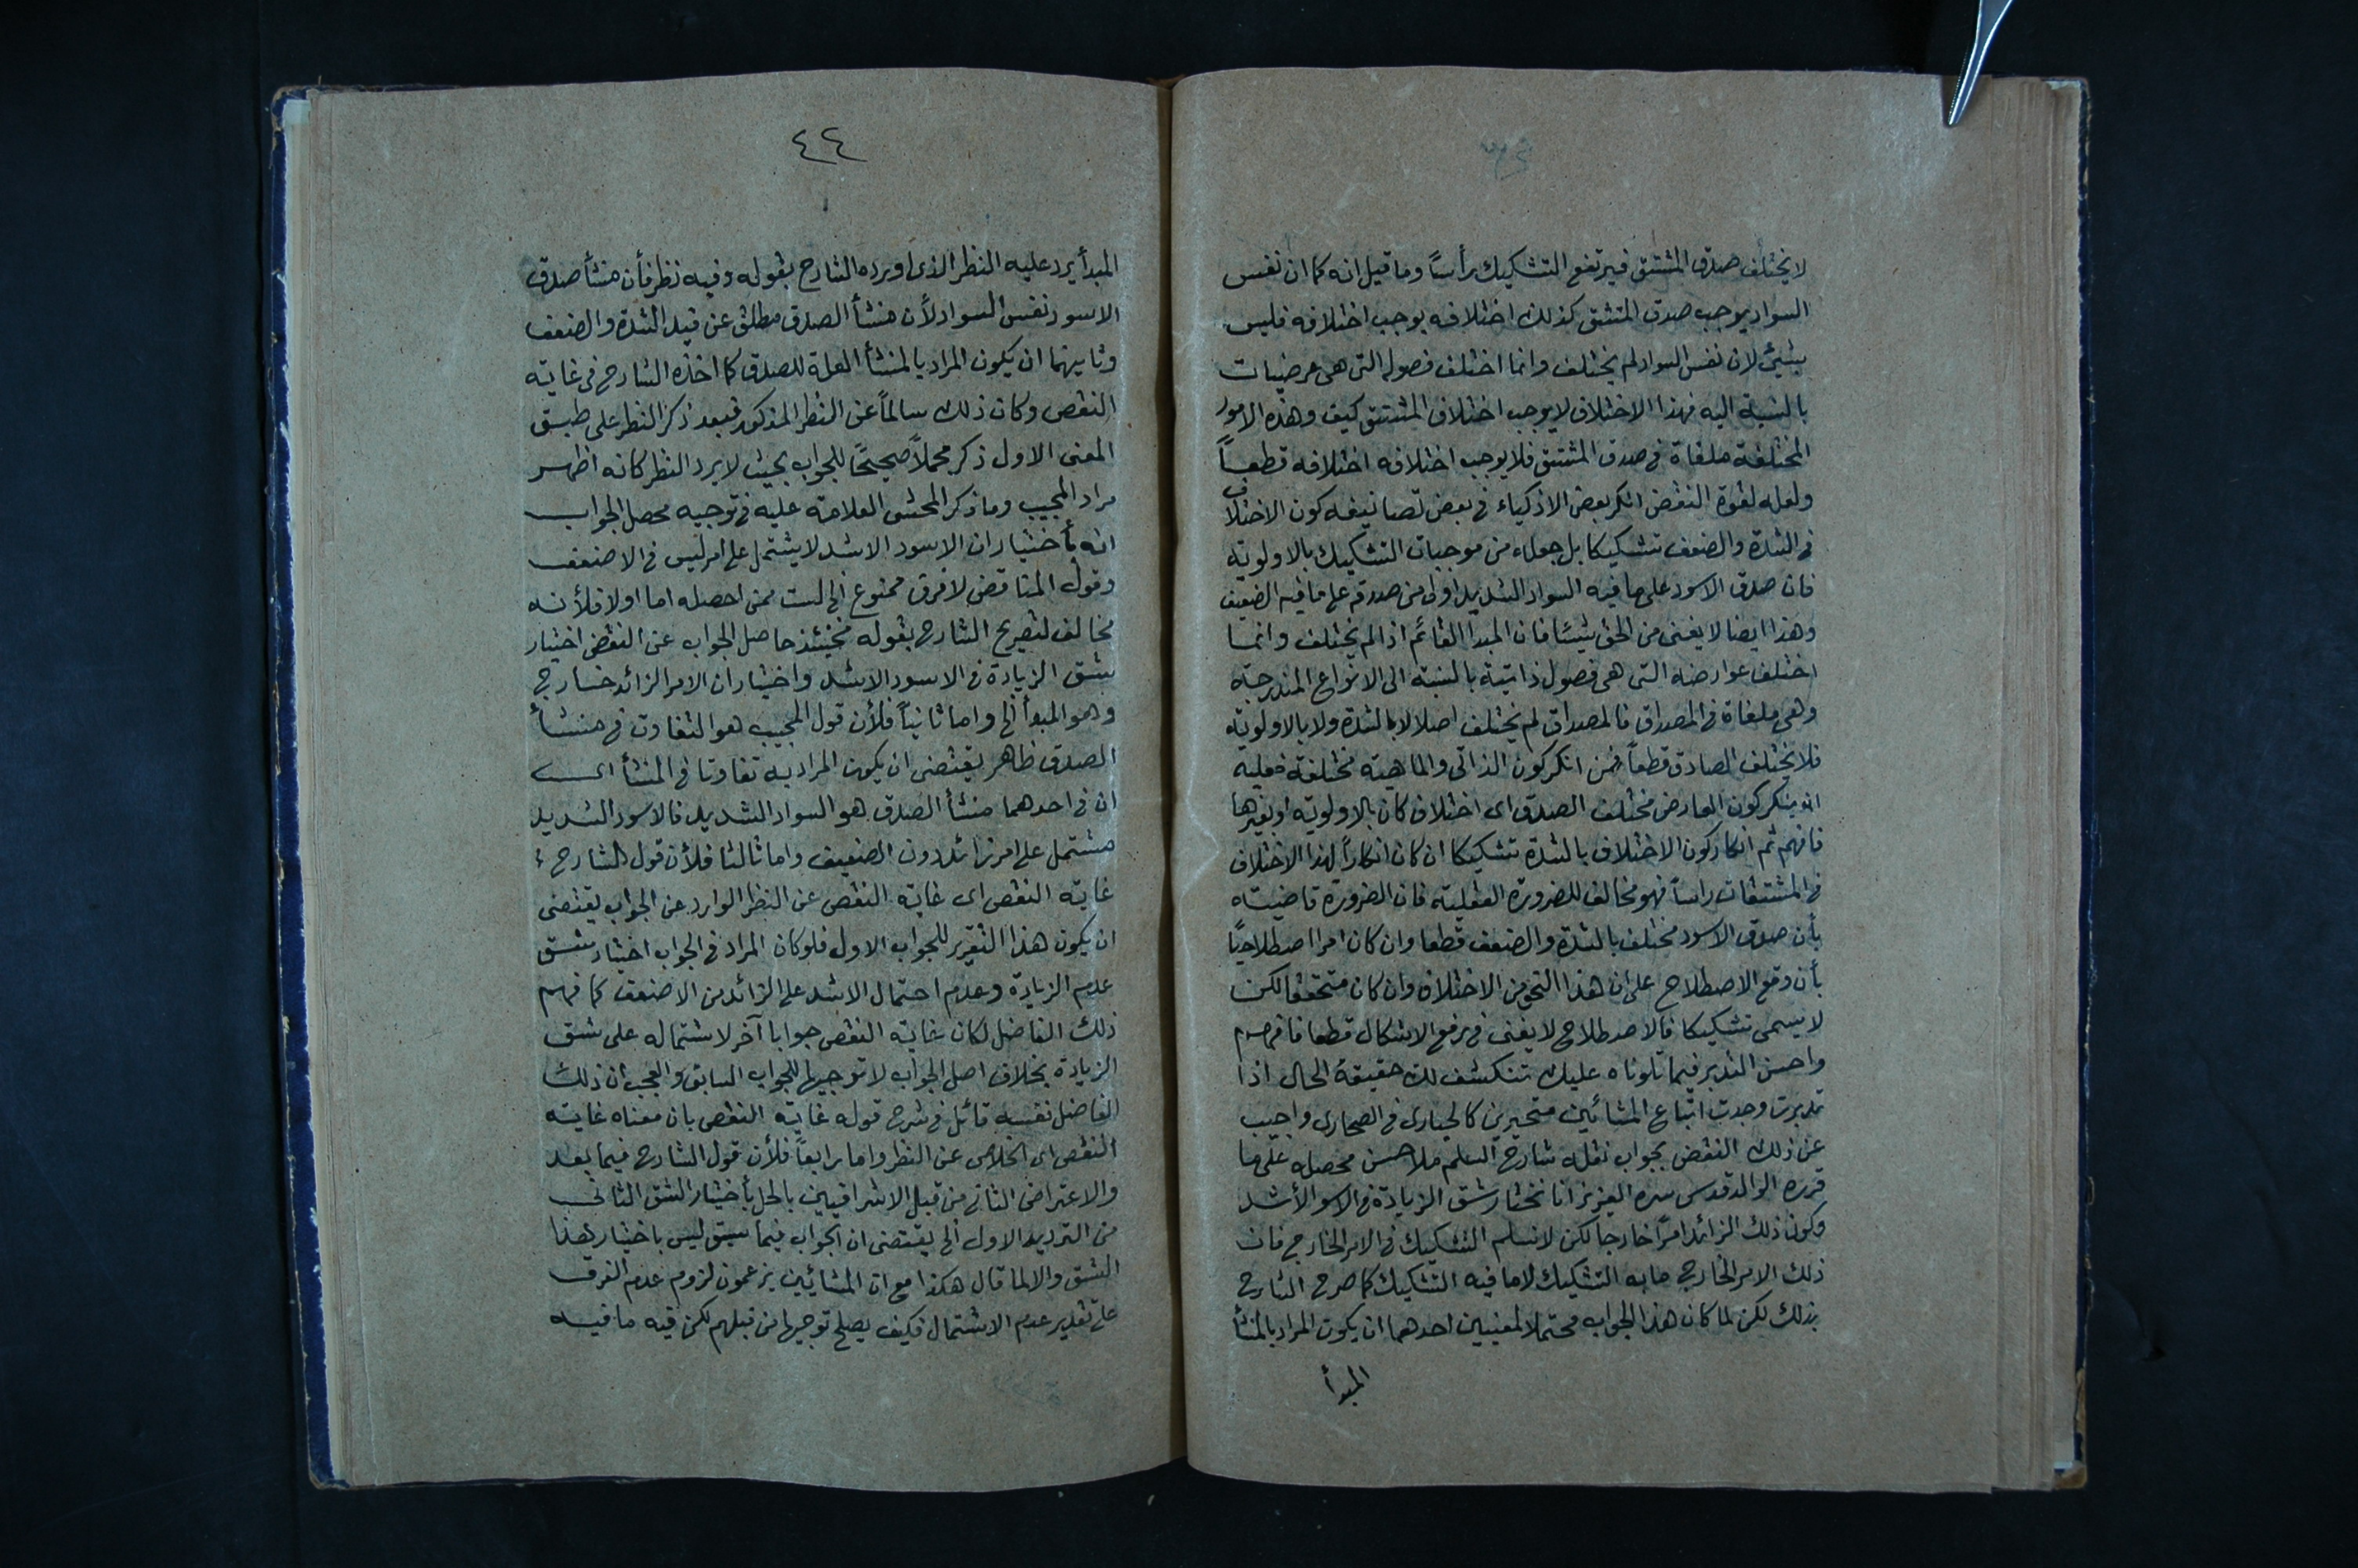 لا يختلف صدق المشتق فيرتفع التشكيك رأساً وما قيل انه كما ان نفس
السواد يوجب صدق المشتق كذلك اختلافه يوجب اختلافه فليس
بشيئ لان نفس السواد لم يختلف وانما اختلف فصوله التى هى عرضيات
بالنسبة اليه فهذا الاختلاف لا يوجب اختلاف المشتق كيف وهذه الامور
المختلفة ملغاة فى صدق المشتق فلا يوجب اختلافه اختلافه قطعاً
ولعله لقوة النقض انكر بعض الاذكياء فى بعض تصانيفه كون الاختلاف
فى الشدة والضعف تشكيكا بل جعله من موجبات التشكيك بالاولوية
فان صدق الاسود على ما فيه السواد الشديد اولى من صدقه على ما فيه الضعيف
وهذا ايضا لا يغنى من الحق شيئا فان المبدا القائم اذا لم يختلف وانما
اختلف عوارضه التى هى فصول ذاتية بالنسبة الى الانواع المندرجة
وهى ملغاة فى المصداق فالمصداق لم يختلف اصلا لا بالشدة ولا بالاولوية
فلا يختلف الصادق قطعاً فمن انكر كون الذاتى والماهية مختلفة فعليه
ان ينكر كون العارض مختلف الصدق اى اختلاف كان بالاولوية او بغيرها
فافهم ثم انكار كون الاختلاف بالشدة تشكيكا ان كان انكاراً لهذا الاختلاف
فى المشتقات راساً فهو مخالف للضرورة العقلية فان الضرورة قاضية
بأن صدق الاسود مختلف بالشدة والضعف قطعا وان كان امرا اصطلاحيًا
بأن وقع الاصطلاح على ان هذا النحو من الاختلاف وان كان متحققا لكن
لا يسمى تشكيكا فالاصطلاح لا يغنى فى رفع الاشكال قطعا فافهم
واحسن التدبر فيما تلوناه عليك تنكشف لك حقيقة الحال اذا
تدبرت وجدت اتباع المشائين متحيرين كالحبارى فى الصحارى واجيب
عن ذلك النقض بجواب نقله شارح السلم ملا حسن محصله على ما
قرره الوالد قدس سره العزيز انا نختار شق الزيادة فى الاسود الأشد
وكون ذلك الزائد امرًا خارجا لكن لا نسلم التشكيك فى الامر الخارج فان
ذلك الامر الخارج ما به التشكيك لا ما فيه التشكيك كما صرح الشارح
بذلك لكن لما كان هذا الجواب محتملا لمعنيين احدهما ان يكون المراد بالمنشأ
المبدأ
٤٤
المبدأ يرد عليه النظر الذى اورده الشارح بقوله وفيه نظر فأن منشأ صدق
الاسود نفس السواد لأن منشأ الصدق مطلق عن قيد الشدة والضعف
وثانيهما ان يكون المراد بالمنشأ العلة للصدق كما اخذه الشارح فى غاية
النقص وكان ذلك سالماً عن النظر المذكور فبعد ذكر النظر على طبق
المعنى الاول ذكر محملاً صحيحًا للجواب بحيث لا يرد النظر كانه اظهر
مراد المجيب وما ذكر المحشى العلامة عليه فى توجيه محصل الجواب
انه بأختيار ان الاسود الاشد لا يشتمل على امر ليس فى الاضعف
وقول المناقض لا فرق ممنوع الخ لست ممن احصله اما اولا فلأنه
مخالف لتصريح الشارح بقوله فحينئذ حاصل الجواب عن النقض اختيار
شق الزيادة فى الاسود الاشد واختيار ان الامر الزائد خارج
وهو المبدأ الخ واما ثانياً فلأن قول المجيب هو التفاوت فى منشأ
الصدق ظاهر يقتضى ان يكون المراد به تفاوتا فى المنشأ اى
ان فى احدهما منشأ الصدق هو السواد الشديد فالاسود الشديد
مشتمل على امر زائد دون الضعيف واما ثالثا فلأن قول الشارح
غاية النقص اى غاية النقص عن النظر الوارد عن الجواب يقتضى
ان يكون هذا التقرير للجواب الاول فلو كان المراد فى الجواب اختيار شق
عدم الزيادة وعدم احتمال الاشد على الزائد من الاضعف كما فهم
ذلك الفاضل لكان غاية النقص جوابا آخر لاشتماله على شق
الزيادة بخلاف اصل الجواب لا توجيها للجواب السابق والعجب ان ذلك
الفاضل نفسه قائل فى شرح قوله غاية النقص بان معناه غاية
النقص اى الخلاص عن النظر واما رابعاً فلأن قول الشارح فيما بعد
والاعتراض الثانى من قبل الاشراقيين بالحل بأختيار الشق الثانى
من الترديد الاول الخ يقتضى ان الجواب فيما سبق ليس باختيار هذا
الشق والا لما قال هكذا مع ان المشائين يزعمون لزوم عدم الفرق
على تقدير عدم الاشتمال فكيف يصلح توجيها من قبلهم لكن فيه ما فيه